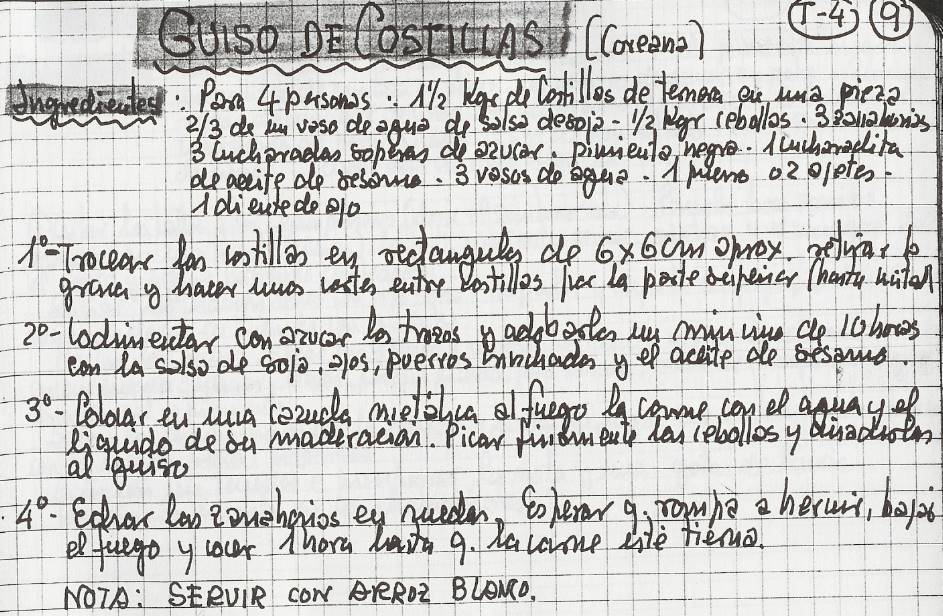 GUISO DE COSTILLAS (Coreana) (T-4) (9)
Ingredientes: Para 4 personas: 1½ Kgr de Costillas de ternera en una pieza
2/3 de un vaso de agua de salsa de soja - ½ Kgr cebollas. 3 zanahorias
3 cucharadas soperas de azucar. pimienta negra. 1 cucharadita
de aceite de sesamo. 3 vasos de agua. 1 puerro o 2 ajetes -
1 diente de ajo
1º- Trocear las costillas en rectangulos de 6x6 cm aprox. retirar la
grasa y hacer unos cortes entre costillas por la parte superior (hasta mitad)
2º- Condimentar con azucar los trozos y adobarlos un minimo de 10 horas
con la salsa de soja, ajos, puerros y el aceite de sesamo.
3º- Colocar en una cazuela metálica al fuego la carne con el agua y el
liquido de su maderación. Picar finamente las cebollas y añadirlas
al guiso
4º- Echar las zanahorias en ruedas, Esperar q. rompa a hervir, bajar
el fuego y cocer 1 hora hasta q. la carne esté tierna.
NOTA: SERVIR CON ARROZ BLANCO.